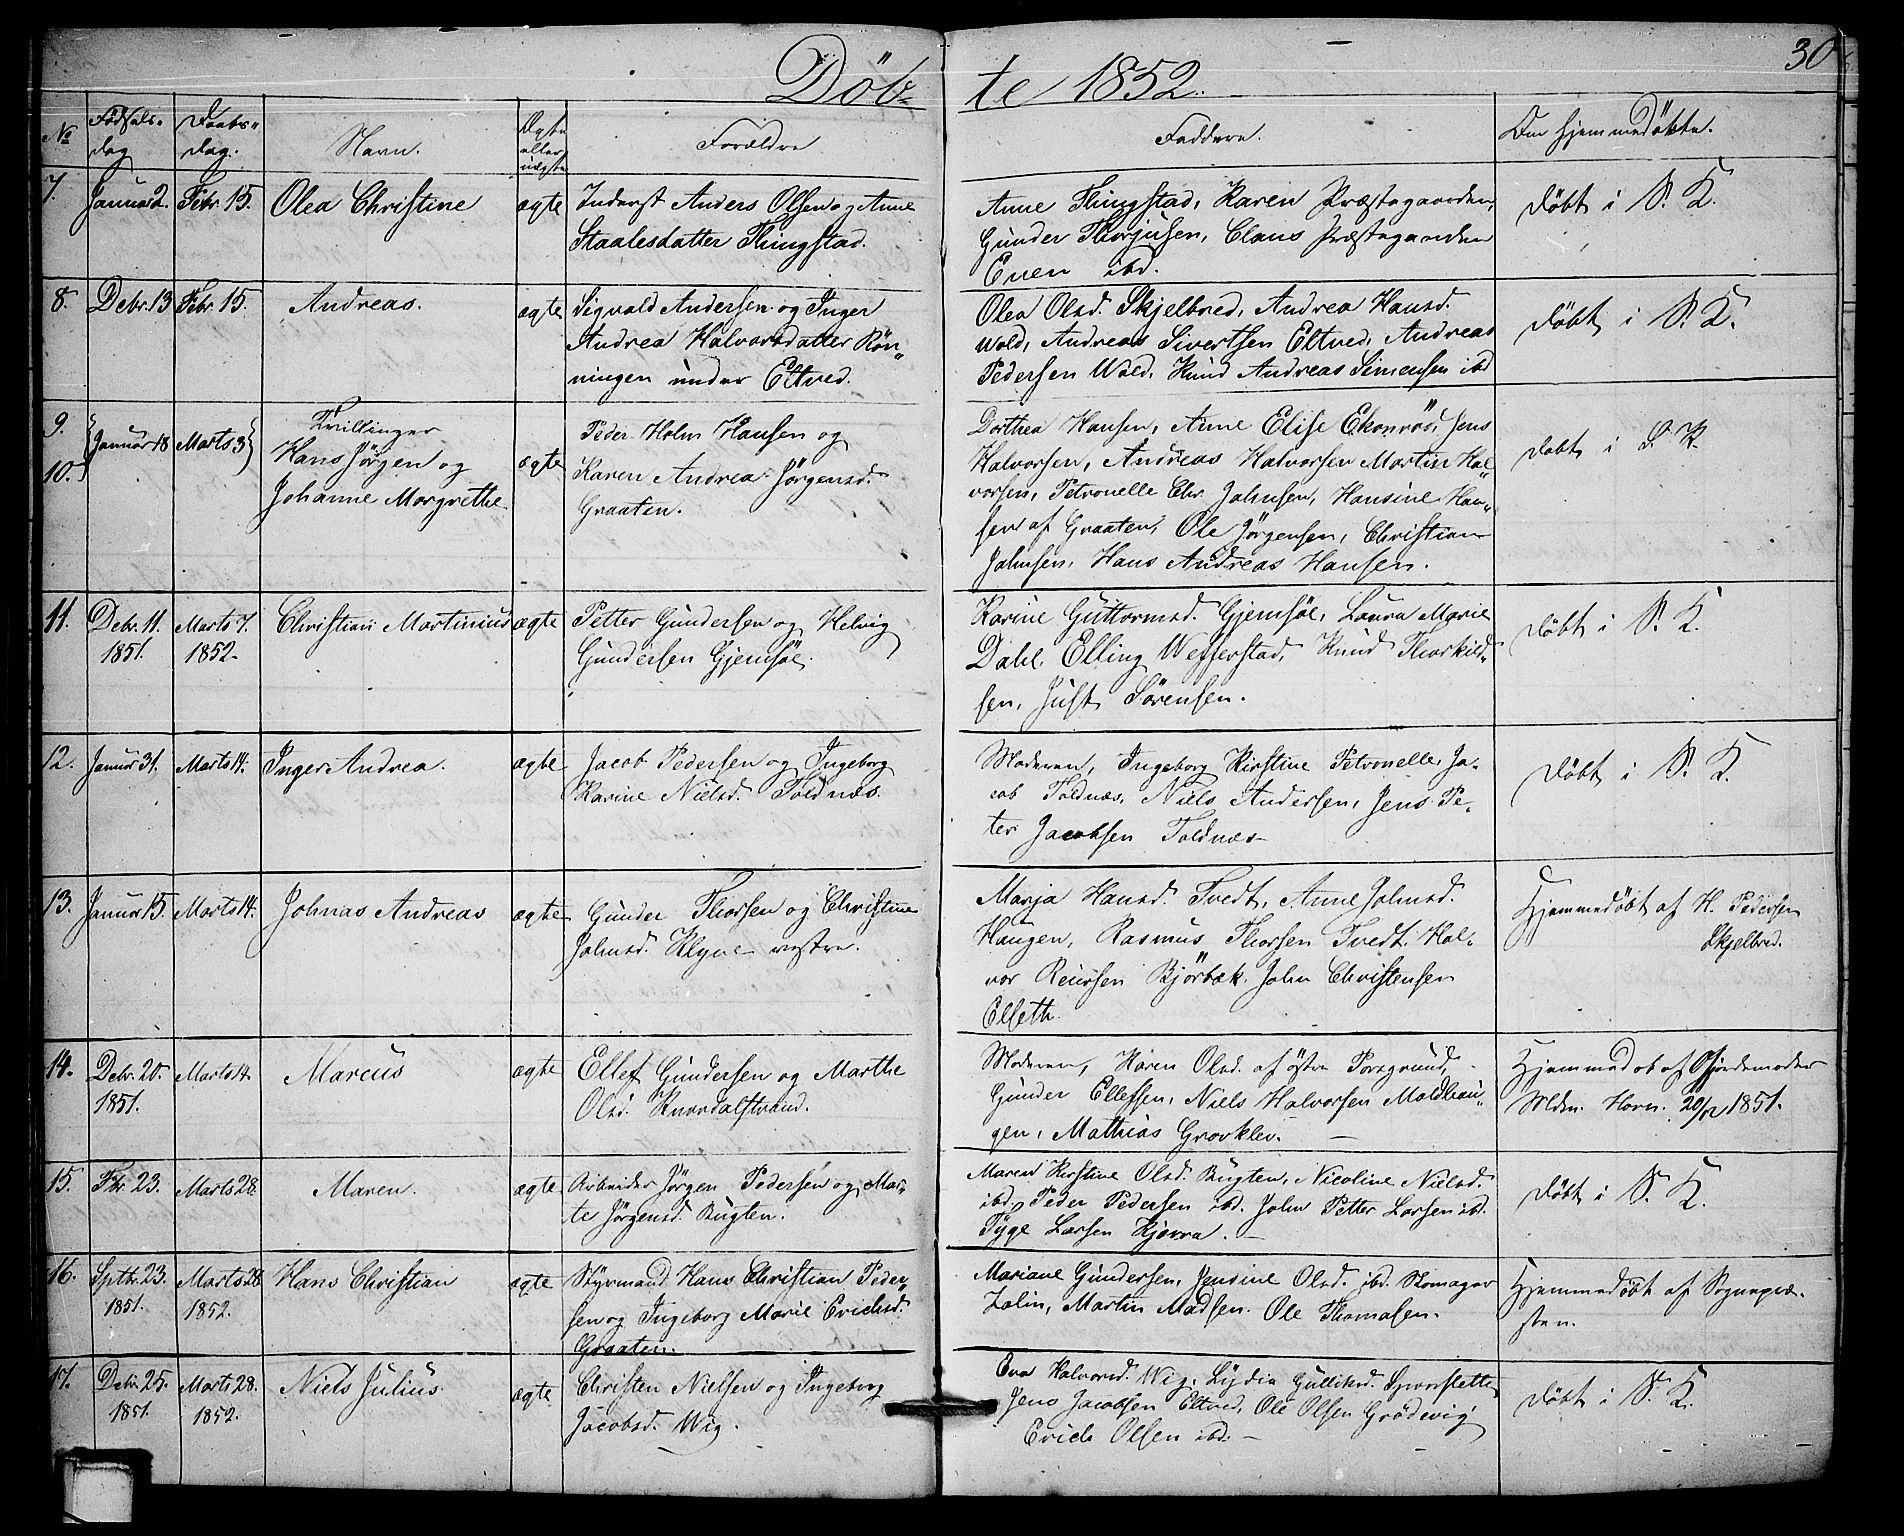 Döbte 1852.
30
No Födsels-dag Daabs-dag. Navn. Ægte eller uægte Forældre Faddere. Om hjemmedöbte.
7. Januar 2. Febr. 15. Olea Christine ægte Inderst Anders Olsen og Anne
Staalesdatter Thingstad.
Anne Thingstad, Karen Præstegaarden,
Gunder Thorjusen, Claus Præstegaarden
Even ibd.
Döbt i P. K.
8. Debr. 13 Febr. 15. Andreas. ægte Sigvald Andersen og Inger
Andrea Halvorsdatter Rön„
ningen under Eltved.
Olea Olsd. Skjelbred, Andrea Hansd.
Wold, Andreas Sivertsen Eltved, Andreas
Pedersen Wold, Knud Andreas Simensen ibd
Döbt i P. K.
9. 10. Januar 18 Marts 3 Tvillinger
Hans Jörgen og
Johanne Margrethe
ægte
Peder Holm Hansen og
Karen Andrea Jörgensd.
Graaten.
Dorthea Hansen, Anne Elise Ekonröd, Jens
Halvorsen, Andreas Halvorsen Martin Hal„
vorsen, Petronelle Chr. Johnsen, Hansine Han„
sen af Graaten, Ole Jörgensen, Christian
Johnsen, Hans Andreas Hansen.
Döbt i P. K.
11. Debr. 11. 1851. Marts 7. 1852. Christian Martinius ægte Petter Gundersen og Helvig
Gundersen Gjemsöe.
Karine Guttormsd. Gjemsöe, Laura Marie
Dahl, Elling Wefferstad, Knud Thorkild„
sen, Just Sörensen.
Döbt i P. K.
12. Januar 31. Marts 14. Inger Andrea. ægte Jacob Pedersen og Ingeborg
Karine Nielsd. Toldnæs.
Moderen, Ingeborg Kirstine Petronelle, Ja-
cob Toldnæs, Niels Andersen, Jens Pe-
ter Jacobsen Toldnæs
Döbt i P. K.
13. Januar 15. Marts 14. Johnas Andreas ægte Gunder Thorsen og Christine
Johnsd. Klyve vestre.
Marja Hansd. Tvedt, Anne Johnsd.
Haugen, Rasmus Thorsen Tvedt, Hal-
vor Reiersen Björbæk, John Christensen
Elseth
Hjemmedöbt af H. Pedersen
Skjelbred.
14. Debr. 20. 1851. Marts 14. Marcus ægte Ellef Gundersen og Marthe
Olsd. Knardalstrand.
Moderen, Karen Olsd. af östre Porsgrund,
Gunder Ellefsen, Niels Halvorsen Moldhau„
gen, Mathias Gravklev.
Hjemmedöb af Gjordemoder
Mdm. Horn. 20/12 1851.
15. Fbr. 23. Marts 28. Maren. ægte Arbeider Jörgen Pedersen og Mar-
te Jörgensd. Bugten.
Maren Kirstine Olsd. Bugten, Nicoline Nielsd.
ibd, Peder Pedersen ibd. John Petter Larsen ibd.
Tyge Larsen Kjörra.
Döbt i P. K.
16. Sptbr. 23. 1851. Marts 28 1852. Hans Christian ægte Styrmand Hans Christian Peder„
sen og Ingeborg Marie Erichsd.
Graaten.
Mariane Gundersen, Jensine Olsd. ibd. Skomager
Zalin, Martin Madsen. Ole Thomasen.
Hjemmedöbt af Sognepræ-
sten.
17. Debr. 25. 1851. Marts 28. 1852. Niels Julius ægte Christen Nielsen og Ingeborg
Jacobsd. Wig.
Eva Halvorsd. Wig, Lydia Gulliksd. Sporsletten
Jens Jacobsen Eltved, Ole Olsen Grödevig
Erich Olsen ibd.
Döbt i P. K.